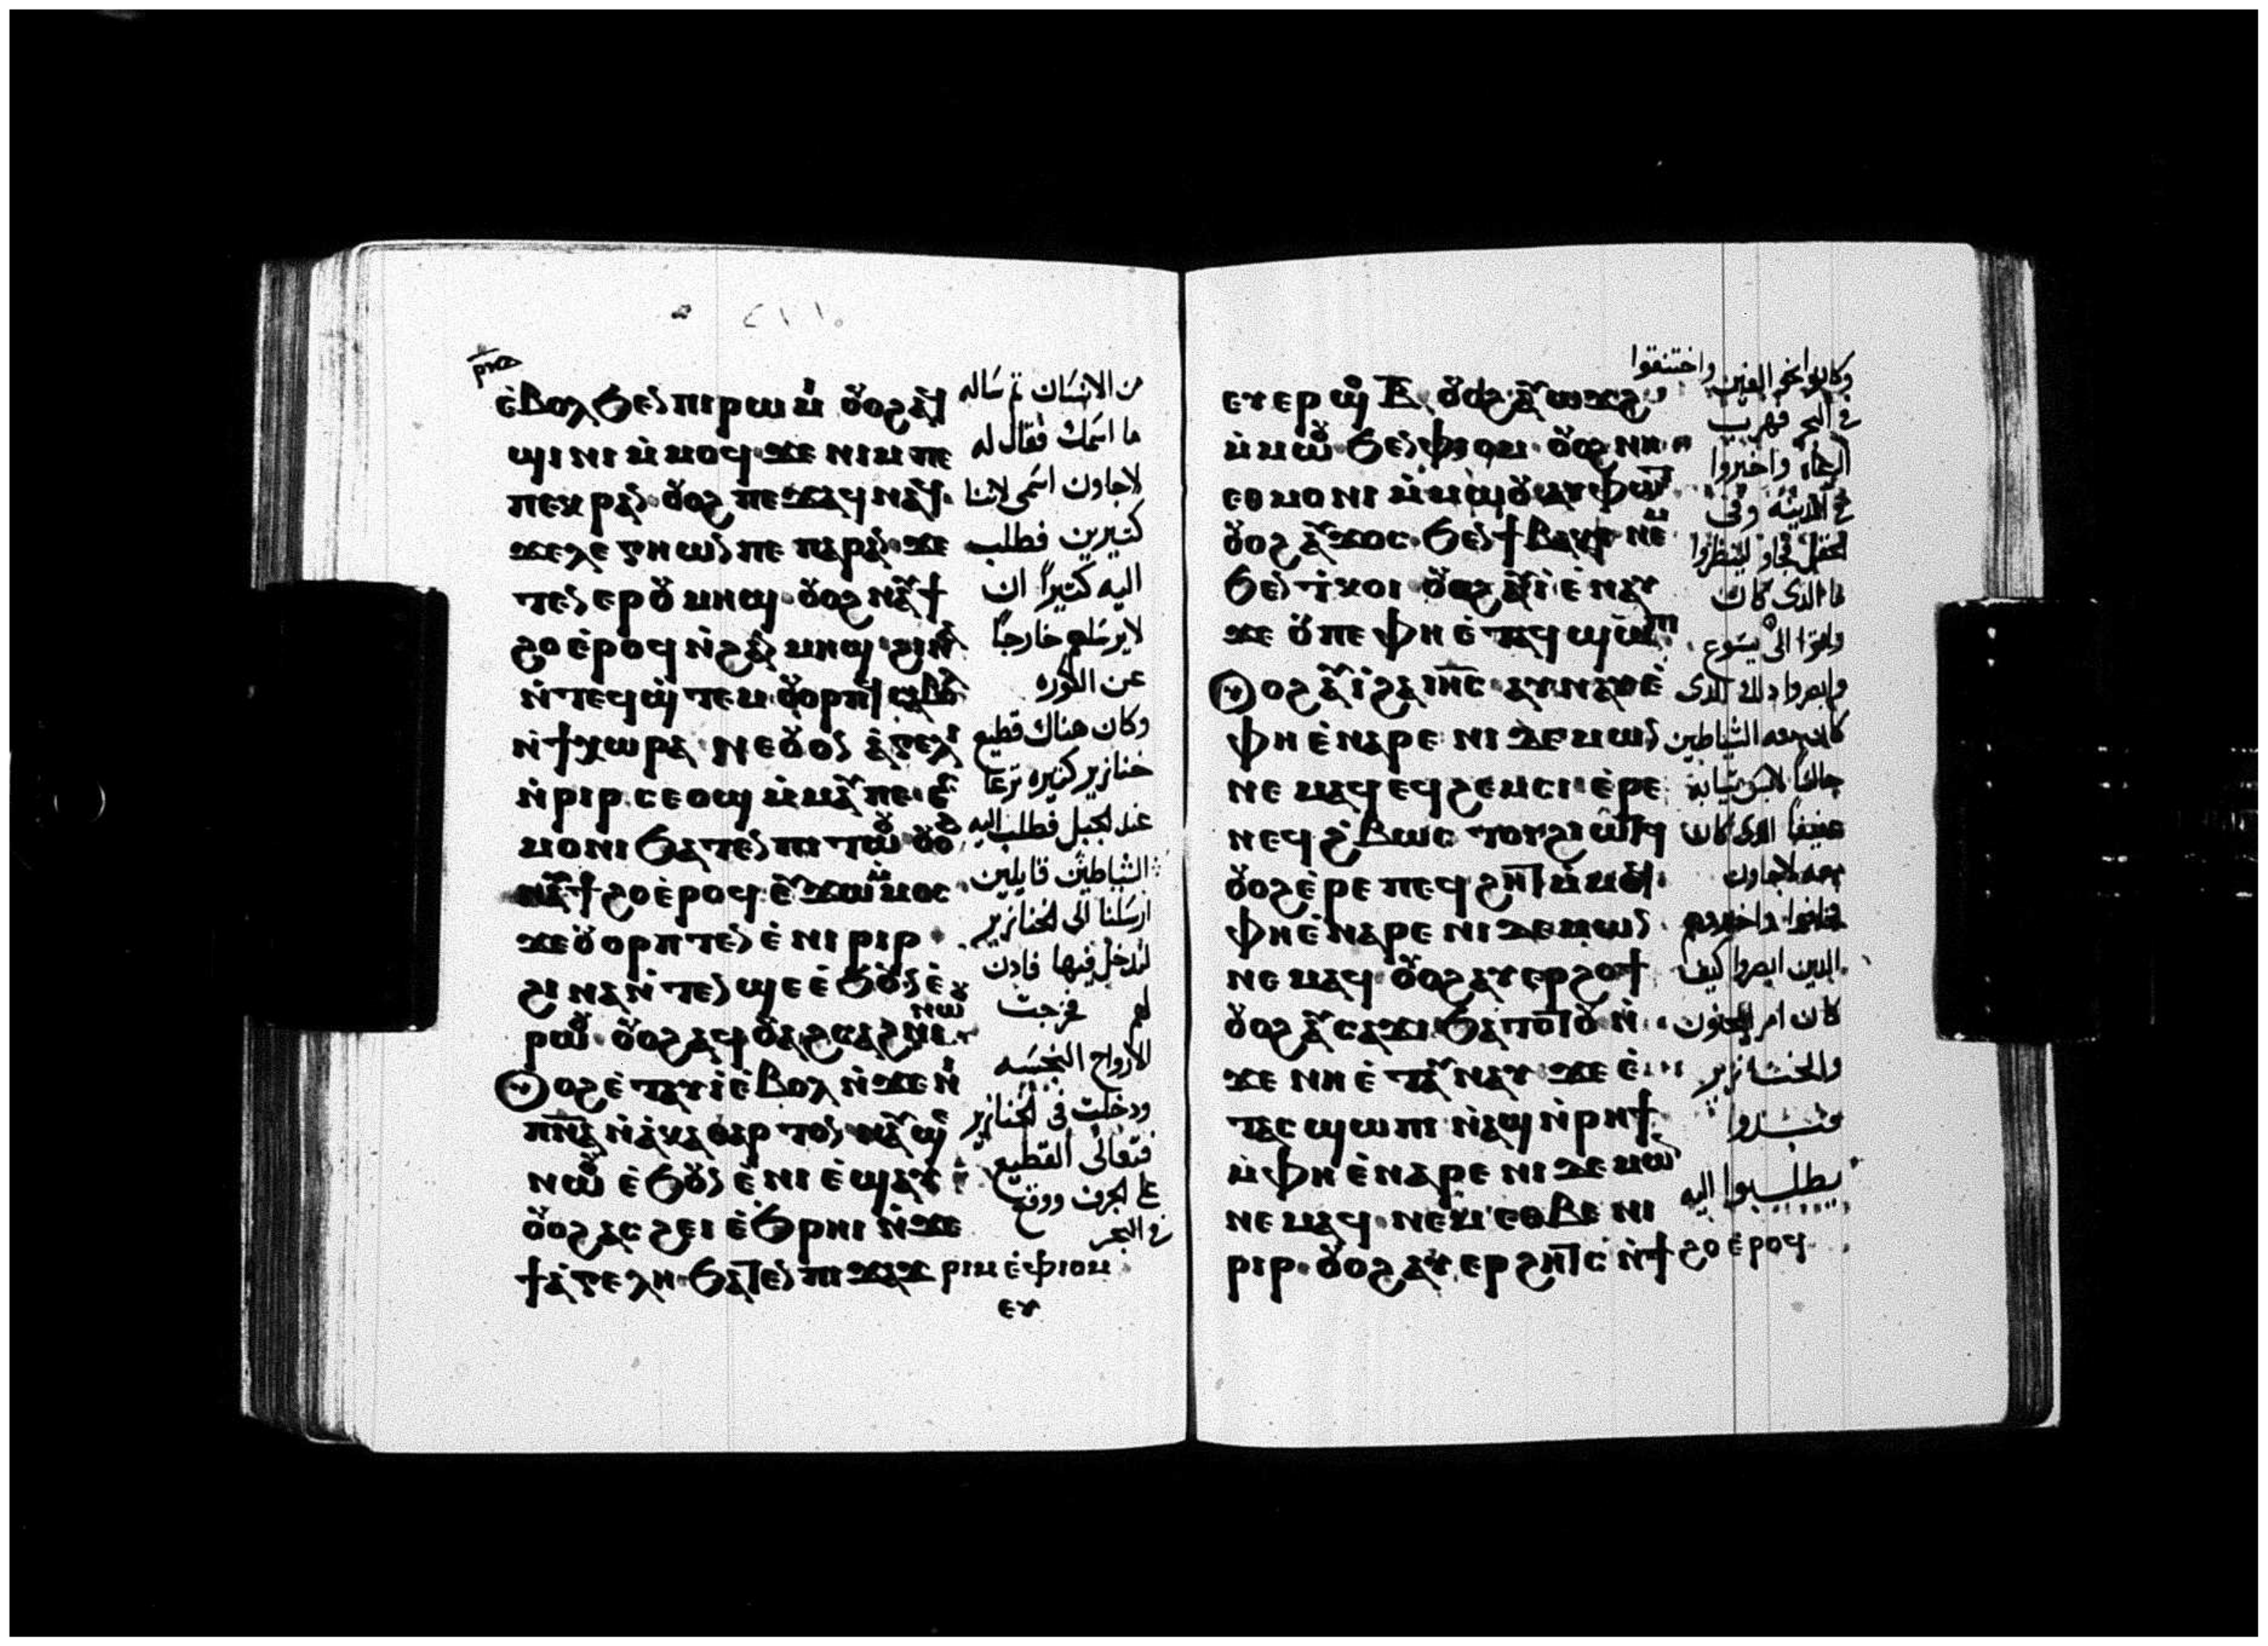 ⲣⲓⲑ
ⲉ̀ⲃⲟⲗ ϧⲉⲛ ⲡⲓⲣⲱⲙⲓ ⲟⲩⲟϩ ⲛⲁϥ
ϣⲓⲛⲓ ⲙ̀ⲙⲟϥ ϫⲉ ⲛⲓⲙ ⲡⲉ
ⲡⲉⲕⲣⲁⲛ ⲟⲩⲟϩ ⲡⲉϫⲁϥ ⲛⲁϥ
ϫⲉ ⲗⲉⲅⲉⲱⲛ ⲡⲉ ⲡⲁⲣⲁⲛ ϫⲉ
ⲧⲉⲛⲉⲣ ⲟⲩⲙⲏϣ ⲟⲩⲟϩ ⲛⲁϥϯ
ϩⲟ ⲉ̀ⲣⲟϥ ⲛ̀ϩⲁⲛ ⲙⲏϣ ϩⲓⲛⲁ
ⲛ̀ⲧⲉϥϣ̀ⲧⲉⲙ ⲟⲩⲟⲣⲡⲟⲩ ⲥⲁⲃⲟⲗ
ⲛ̀ϯⲭⲱⲣⲁ ⲛⲉ ⲟⲩⲟⲛ ⲁ̀ⲅⲉⲗⲏ
ⲛ̀ⲣⲓⲣ ⲉⲥⲟϣ ⲙ̀ⲙⲁⲩ ⲡⲉ ⲉⲩ
ⲙⲟⲛⲓ ϧⲁⲧⲉⲛ ⲡⲓⲧⲱⲟⲩ ⲟⲩⲟϩ
ⲛⲁⲩϯϩⲟ ⲉ̀ⲣⲟϥ ⲉⲩϫⲱ ⲙ̀ⲙⲟⲥ
ϫⲉ ⲟⲩⲟⲣⲡⲧⲉⲛ ⲉ̀ⲛⲓⲣⲓⲣ
ϩⲓⲛⲁ ⲛ̀ⲧⲉⲛϣⲉ ⲉ̀ϧⲟⲩⲛ ⲉ̀
ⲣⲱⲟⲩ ⲟⲩⲟϩ ⲁϥⲟⲩⲁϩⲥⲁϩⲛⲓ ⲛⲱⲟⲩ
ⲟⲩⲟϩ ⲉ̀ⲧⲁⲩⲓ̀ ⲉ̀ⲃⲟⲗ ⲛ̀ϫⲉ ⲛⲓ
ⲡⲛⲁ ⲛ̀ⲁ̀ⲕⲁⲑⲁⲣⲧⲟⲛ ⲁⲩϣⲉ
ⲛⲱⲟⲩ ⲉ̀ϧⲟⲩⲛ ⲉ̀ⲛⲓⲉ̀ϣⲁⲩ
ⲟⲩⲟϩ ⲁⲥϩⲉⲓ ⲉ̀ϧⲣⲏⲓ ⲛ̀ϫⲉ
ϯⲁ̀ⲅⲉⲗⲏ ϧⲁⲧⲉⲛ ⲡⲓϫⲁϫⲣⲓⲙ ⲉ̀ⲫⲓⲟⲙ
ⲉⲩ
من الانسان ثم سَاله
ما اسَمك فقال له
لاجاون اسَمى لاننا
كثيرين فطلب
اليه كثيراً ان
لا يرسَلهم خارجاً
عن الكوره
وكان هناك قطيع
خنازير كثيره ترعا
عند الجبل فطلب اليه
الشياطين قايلين
ارسَلنا الى الخنازير
لندخل فيها فاذن
لهم فخرجت
الارواح النجسَه
ودخلت فى الخنازير
فتعالى القطيع
على الجرف ووقع
فى البحر
ⲉⲩⲉⲣ ϣⲟ ⲃ ⲟⲩⲟϩ ⲁⲩⲱϫϩ
ⲙ̀ⲙⲱⲟⲩ ϧⲉⲛ ⲫⲓⲟⲙ ⲟⲩⲟϩ ⲛⲏ
ⲉⲑⲙⲟⲛⲓ ⲙ̀ⲙⲱⲟⲩ ⲁⲩⲫⲱⲧ
ⲟⲩⲟϩ ⲁⲩϫⲟⲥ ϧⲉⲛ ϯⲃⲁⲕⲓ ⲛⲉⲙ
ϧⲉⲛ ⲓ̀ⲕⲟⲓ ⲟⲩⲟϩ ⲁⲩⲓ̀ ⲉ̀ⲛⲁⲩ
ϫⲉ ⲟⲩ ⲡⲉ ⲫⲏ ⲉ̀ⲧⲁϥϣⲱⲡⲓ
ⲟⲩⲟϩ ⲁⲩⲓ̀ ϩⲁ ⲓⲏⲥ ⲁⲩⲛⲁⲩ ⲉ̀
ⲫⲏ ⲉ̀ⲛⲁⲣⲉ ⲛⲓⲇⲉⲙⲱⲛ
ⲛⲉⲙⲁϥ ⲉϥϩⲉⲙⲥⲓ ⲉ̀ⲣⲉ
ⲛⲉϥϩ̀ⲃⲱⲥ ⲧⲟⲓ ϩⲓⲱⲧϥ
ⲟⲩⲟϩ ⲉ̀ⲣⲉ ⲡⲉϥϩⲏⲧ ⲙ̀ⲙⲟϥ
ⲫⲏ ⲉ̀ⲛⲁⲣⲉ ⲛⲓⲇⲉⲙⲱⲛ
ⲛⲉⲙⲁϥ ⲟⲩⲟϩ ⲁⲩⲉⲣϩⲟϯ
ⲟⲩⲟϩ ⲁⲩⲥⲁϫⲓ ϧⲁⲧⲟⲧⲟⲩ ⲛ̀
ϫⲉ ⲛⲏ ⲉ̀ⲧⲁⲩⲛⲁⲩ ϫⲉ ⲉ̀
ⲧⲁⲥϣⲱⲡⲓ ⲛ̀ⲁϣ ⲛ̀ⲣⲏϯ
ⲙ̀ⲫⲏ ⲉ̀ⲛⲁⲣⲉ ⲛⲓⲇⲉⲙⲱⲛ
ⲛⲉⲙⲁϥ ⲛⲉⲙ ⲉⲑⲃⲉ ⲛⲓ
ⲣⲓⲣ ⲟⲩⲟϩ ⲁⲩⲉⲣϩⲏⲧⲥ ⲛ̀ϯϩⲟ ⲉ̀ⲣⲟϥ
وكانوا نحو الفين واختنقوا
فى البحر فهرب
الرعاه واخبروا
فى المدينه وفى
الحقل فجاوا لينظروا
ما الذى كان
واتوا الى يسَوع
وابصروا ذلك الذى
كان معه الشياطين
جالسًا لابس ثيابه
عفيفا الذى كان
معه لاجاون
فخافوا واخبروهم
الذين ابصروا كيف
كان امر المجنون
والخنازير
فبدوا
يطلبوا اليه